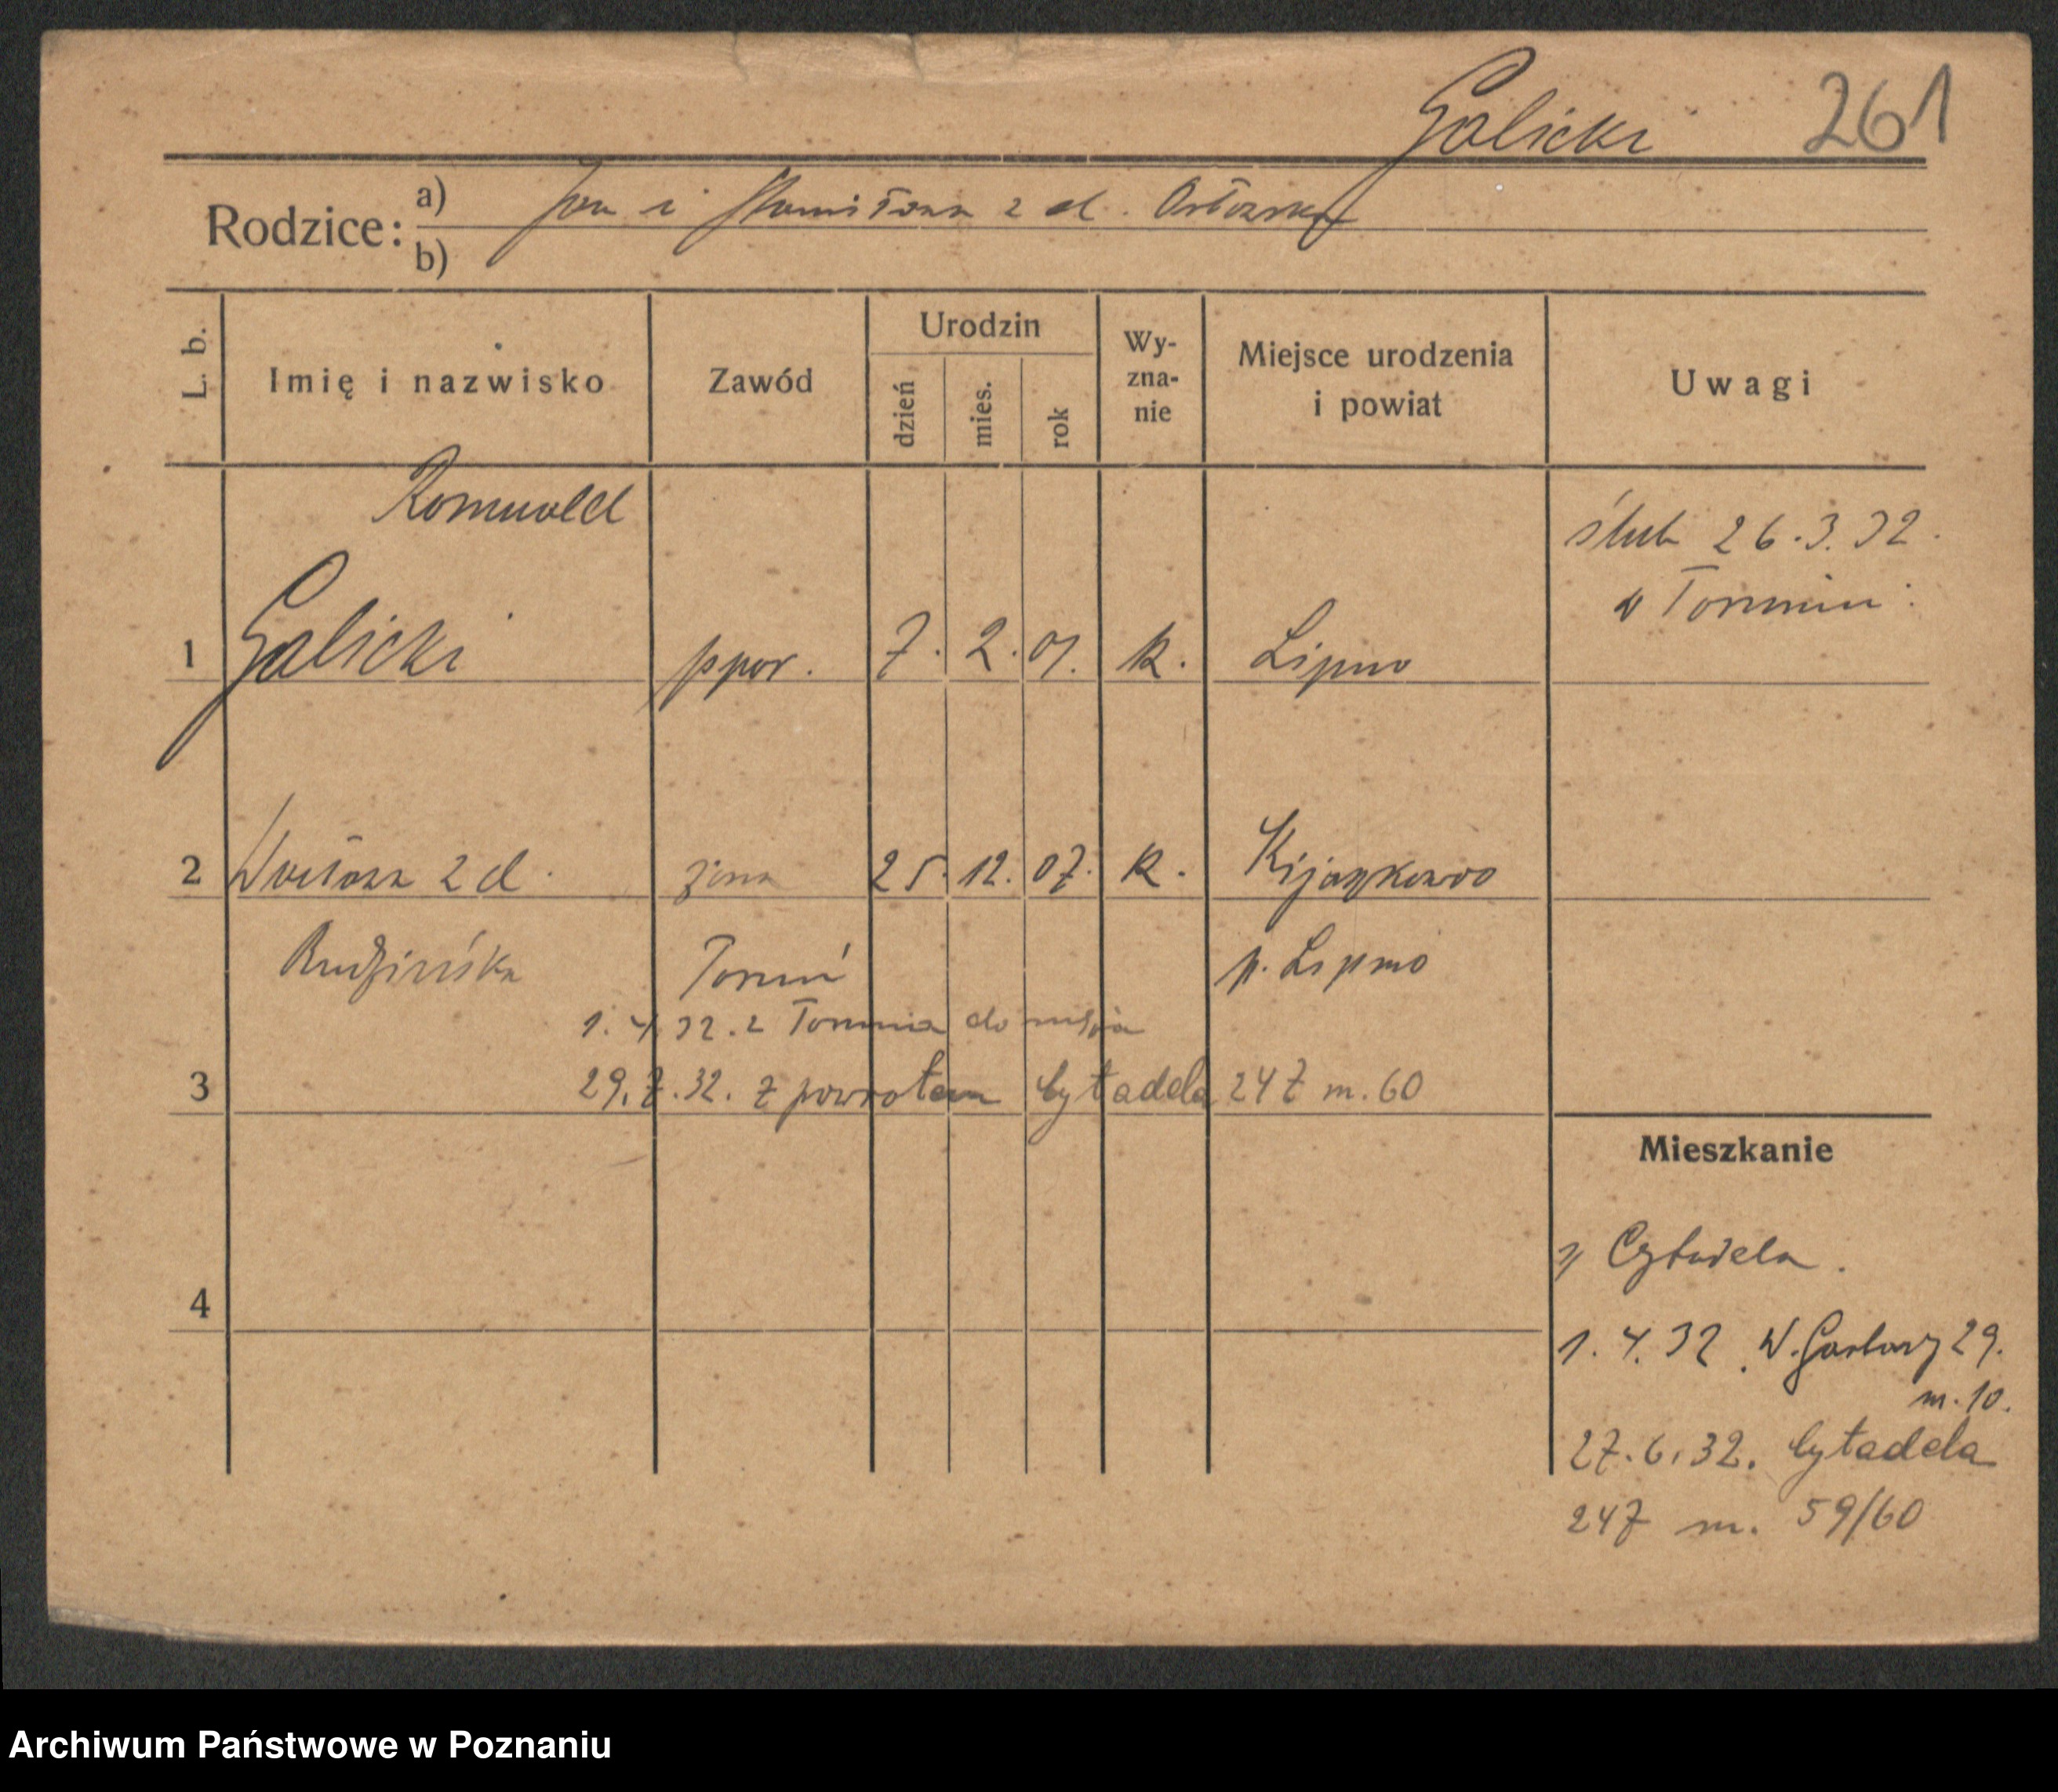 Galicki 261
Rodzice: a) Jan i Stanisława z d. Ostowska
b)
L. b. Imię i nazwisko Zawód Urodzin dzień mies. rok Wy-zna-nie Miejsce urodzenia i powiat Uwagi
Romuald
ślub 26.3.32.
w Toruniu.
1 Galicki ppor. 7. 2. 07. k. Lipno
2 z d. żona 25. 12. 07. k. Kijaszkowo
Rudzińska Toruń p. Lipno
1.4.32. z Torunia do męża
3 29.7.32. z powrotem Cytadela 247 m. 60
Mieszkanie
Cytadela.
4
1.4.32 W. Garbary 29.
m. 10.
27.6.32. Cytadela
247 m. 59/60
Archiwum Państwowe w Poznaniu